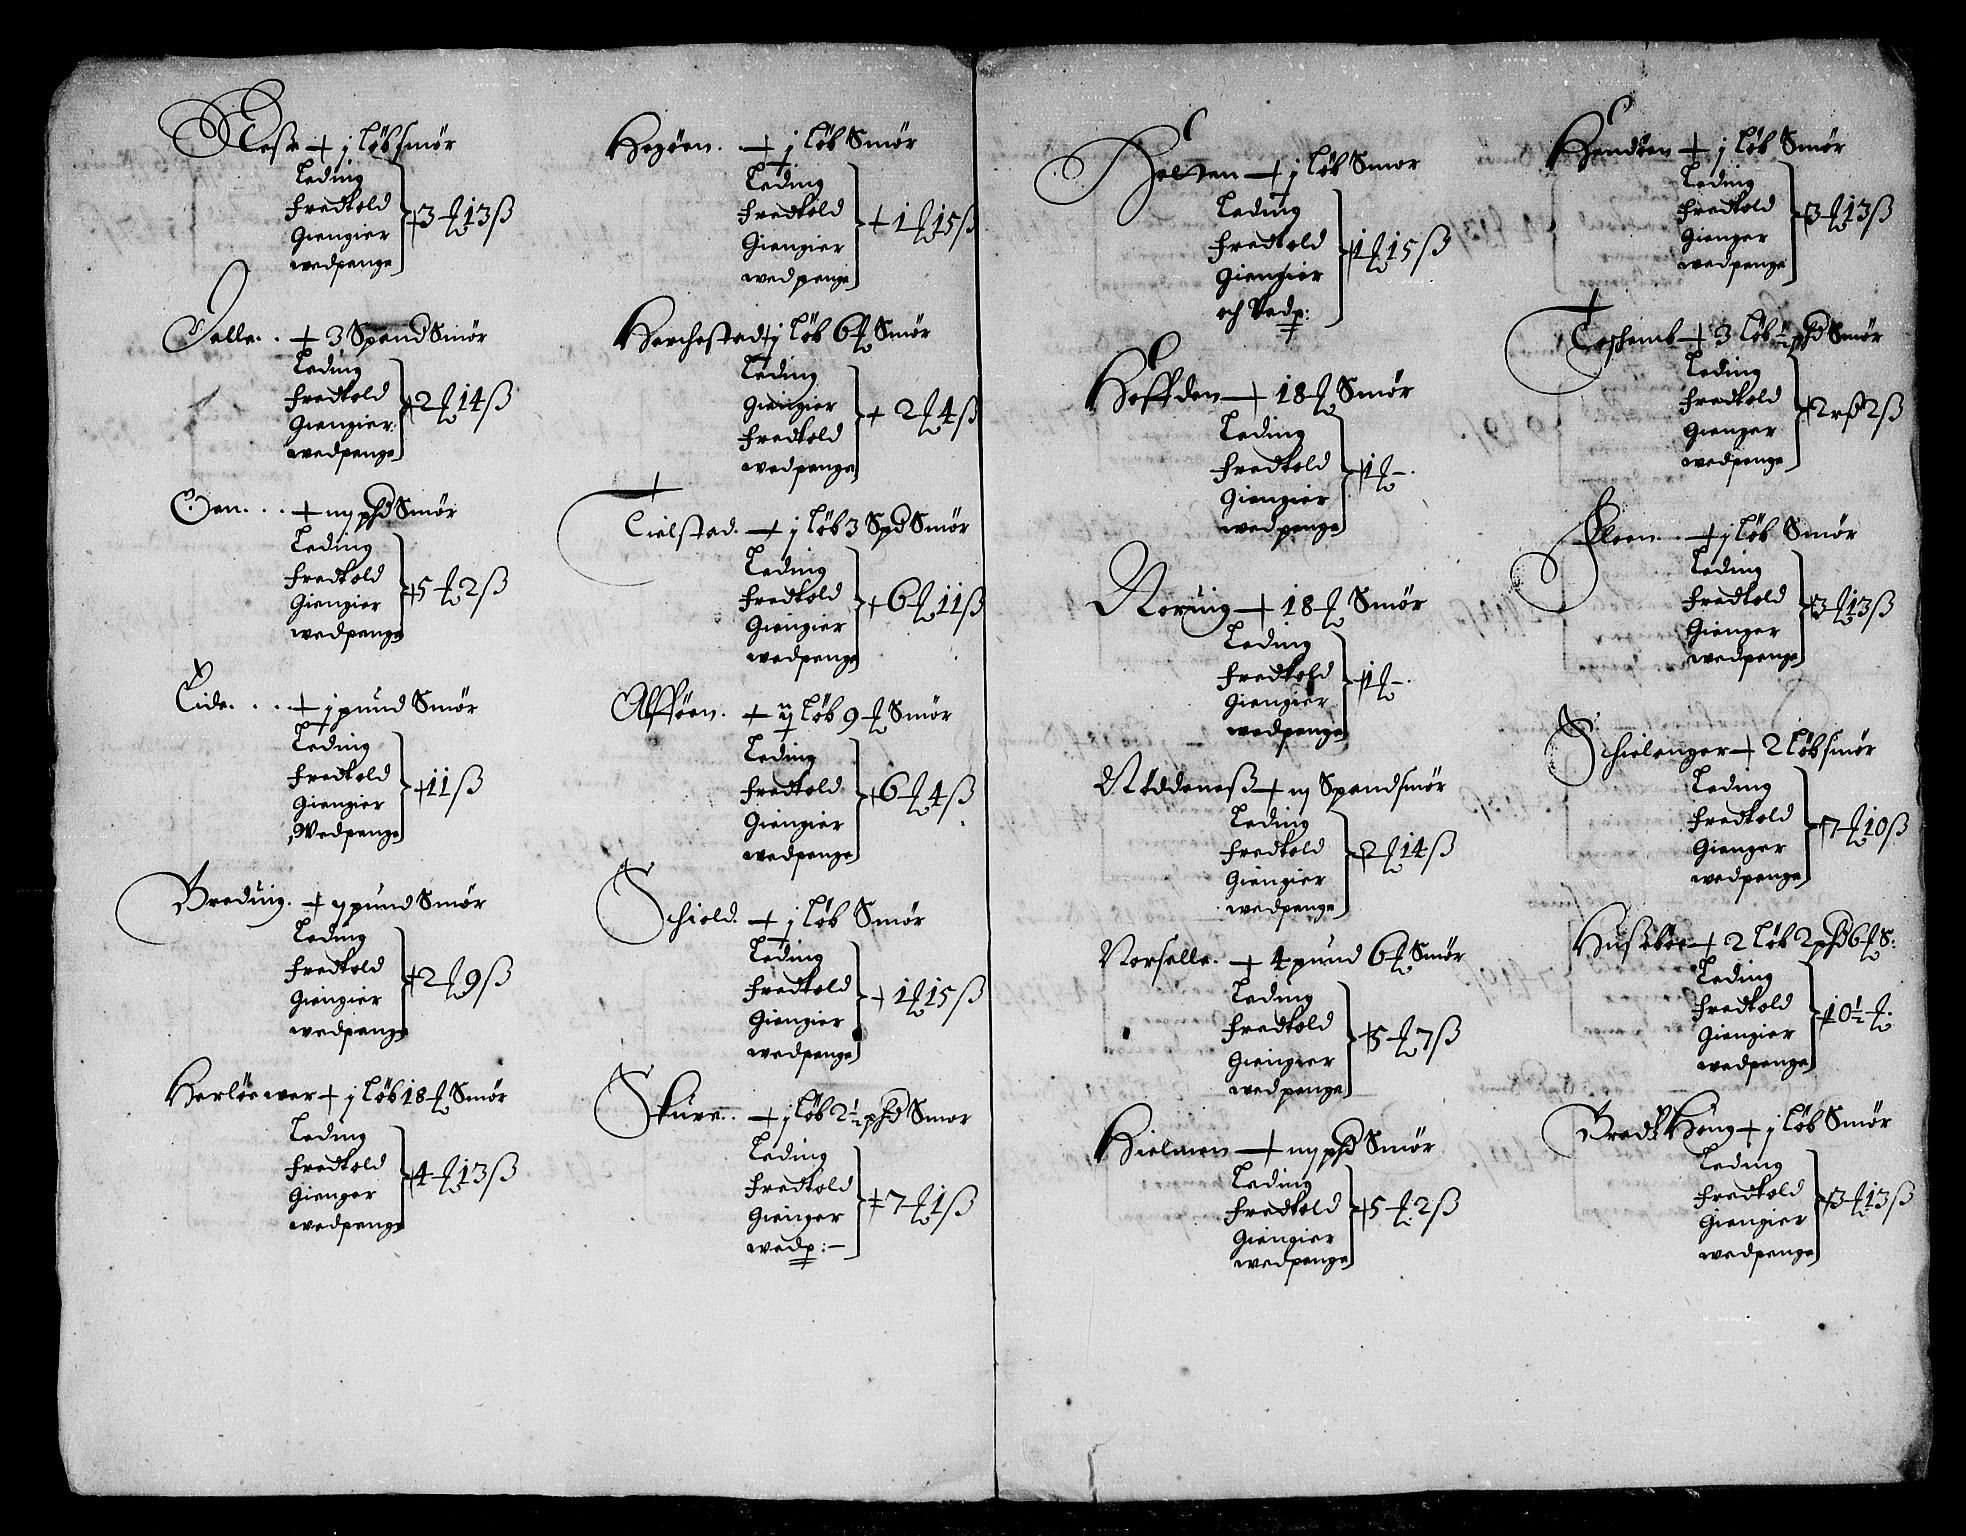 Næsse + j løb smør
Leding
Fredtold
Giengier
wedpenge
+ 3 ₰ 13 ß
Jelle. . + 3 Spand Smør
Leding
Fredtold
Giengier
wedpenge
+ 2 ₰ 14 ß
Øen. . . + iij phd Smør
Leding
Fredtold
Giengier
wedpenge
+ 5 ₰ 2 ß
Eide. . . + j pund Smør
Leding
Fredtold
Giengier
Wedpenge
+ 11 ß
Breduig. + ij pund Smør
Leding
Fredtold
Giengier
wedpenge
+ 2 ₰ 9 ß
Herløewer + j løb 18 ₰ Smør
Leding
Fredtold
Gienger
wedpenge
+ 4 ₰ 13 ß
Hegøen. + j løb Smør
Leding
Fredtold
Giengier
wedpenge
+ 1 ₰ 15 ß
Herchestad + j løb 6 ₰ Smør
Leding
Giengier
Fredtold
wedpenge
+ 2 ₰ 4 ß
Tielstad. + j løb 3 Spd Smør
Leding
Fredtold
Giengier
wedpenge
+ 6 ₰ 11 ß
Alfføen. + ij løb 9 ₰ Smør
Leding
Fredtold
Giengier
wedpenge
+ 6 ₰ 4 ß
Schield. + j løb Smør
Leding
Fredtold
Giengier
wedpenge
+ 1 ₰ 15 ß
Skure. . + j løb 2½ phd Smør
Leding
Fredtold
Gienger
wedp: —
+ 7 ₰ 1 ß
Holten + j løb Smør
Leding
Fredtold
Giengier
och Vedp:
+ 1 ₰ 15 ß
Hoffden + 18 ₰ Smør
Leding
Fredtold
Giengier
wedpenge
+ 1 ₰ —.
Noruig + 18 ₰ Smør
Leding
Fredtold
Giengier
wedpenge
+ 1 ₰ —.
Nøddeneß + iij Spand smør
Leding
Fredtold
Giengier
wedpenge
+ 2 ₰ 14 ß
Norselle. + 4 pund 6 ₰ Smør
Leding
Fredtold
Giengier
wedpenge
+ 5 ₰ 7 ß
Hielmen + iij phd Smør
Leding
Fredtold
Giengier
wedpenge
+ 5 ₰ 2 ß
Hendøen + j løb Smør
Leding
Fredtold
Gienger
wedpenge
+ 3 ₰ 13 ß
Toschemb + 3 løb ½ phd Smør
Leding
Fredtold
Gienger
wedpenge
+ 2 rß 2 ß
Floen. . + j løb Smør
Leding
Fredtold
Gienger
wedpenge
+ 3 ₰ 13 ß
Schielanger + 2 løb smør
Leding
Fredtold
Gienger
wedpenge
+ 7 ₰ 10 ß
Hußebøe + 2 løb 2 phd 6 ₰ S:
Leding
Fredtold
Giengier
wedpenge
+ 10½ ₰.
Bredt Høug + j løb Smør
Leding
Fredtold
Giengier
wedpenge
+ 3 ₰ 13 ß